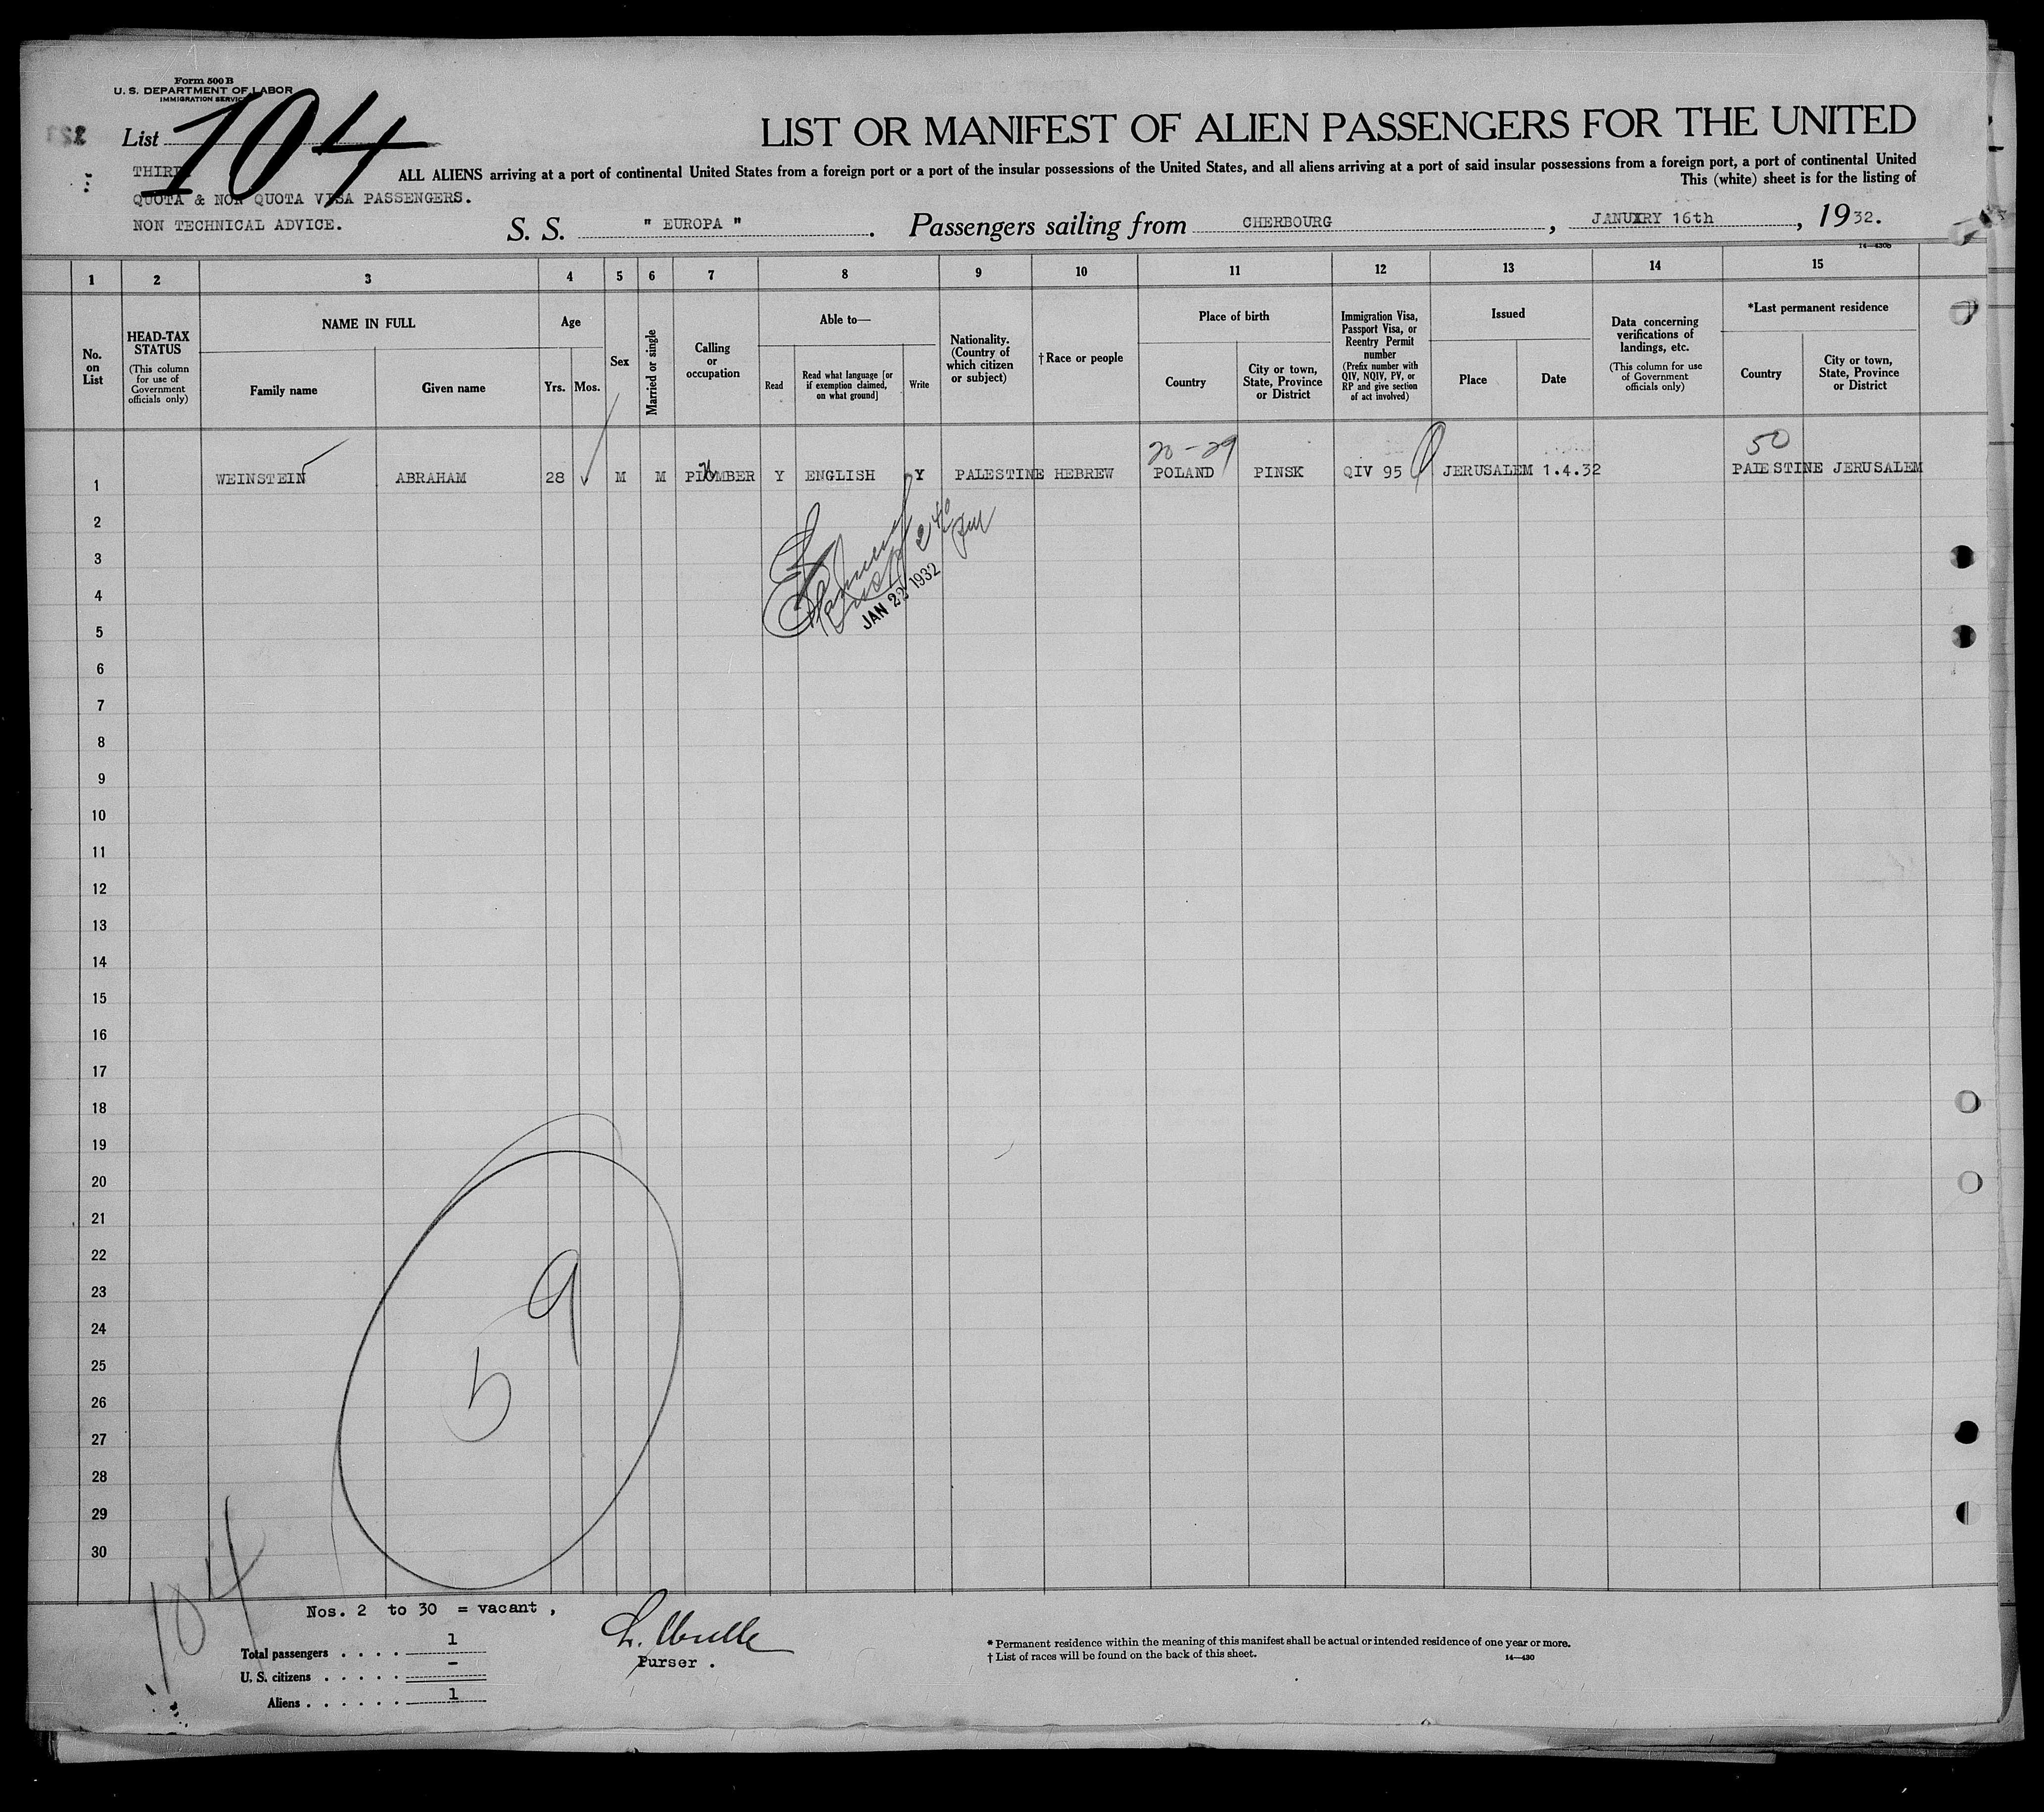 Form 500 B
U. S. DEPARTMENT OF LABOR
IMMIGRATION SERVICE
List 104
LIST OR MANIFEST OF ALIEN PASSENGERS FOR THE UNITED
THIRD
ALL ALIENS arriving at a port of continental United States from a foreign port or a port of the insular possessions of the United States, and all aliens arriving at a port of said insular possessions from a foreign port, a port of continental United
This (white) sheet is for the listing of
QUOTA & NON QUOTA VISA PASSENGERS.
NON TECHNICAL ADVICE.
S. S. " EUROPA ". Passengers sailing from CHERBOURG, JANUARY 16th, 1932.
14—430B
1 2 3 4 5 6 7 8 9 10 11 12 13 14 15
No. on List
HEAD-TAX STATUS (This column for use of Government officials only)
NAME IN FULL
Family name
Given name
Age
Yrs.
Mos.
Sex
Married or single
Calling or occupation
Able to—
Read
Read what language [or if exemption claimed, on what ground]
Write
Nationality. (Country of which citizen or subject)
†Race or people
Place of birth
Country
City or town, State, Province or District
Immigration Visa, Passport Visa, or Reentry Permit number (Prefix number with QIV, NQIV, PV, or RP and give section of act involved)
Issued
Place
Date
Data concerning verifications of landings, etc. (This column for use of Government officials only)
*Last permanent residence
Country
City or town, State, Province or District
20-29
50
1 WEINSTEIN ABRAHAM 28 M M PLUMBER Y ENGLISH Y PALESTINE HEBREW POLAND PINSK QIV 95 JERUSALEM 1.4.32 PALESTINE JERUSALEM
2
3
4
JAN 22 1932
5
6
7
8
9
10
11
12
13
14
15
16
17
18
19
20
21
22
23
24
25
26
27
28
29
30
59
104
Nos. 2 to 30 = vacant ,
Total passengers . . . . 1
U. S. citizens . . . . . –
Aliens . . . . . . 1
Purser .
* Permanent residence within the meaning of this manifest shall be actual or intended residence of one year or more.
† List of races will be found on the back of this sheet.
14—430